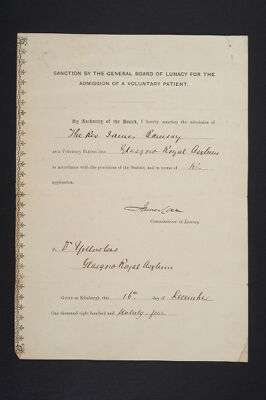 SANCTION BY THE GENERAL BOARD OF LUNACY FOR THE
ADMISSION OF A VOLUNTARY PATIENT.
By Authority of the Board, I hereby sanction the admission of
The Rev. James Ramsay
as a Voluntary Patient into Glasgow Royal Asylum
in accordance with the provisions of the Statute, and in terms of his
application.
Commissioner in Lunacy.
To Dr Yellowlees
Glasgow Royal Asylum
Given at Edinburgh, this 16th day of December
One thousand eight hundred and